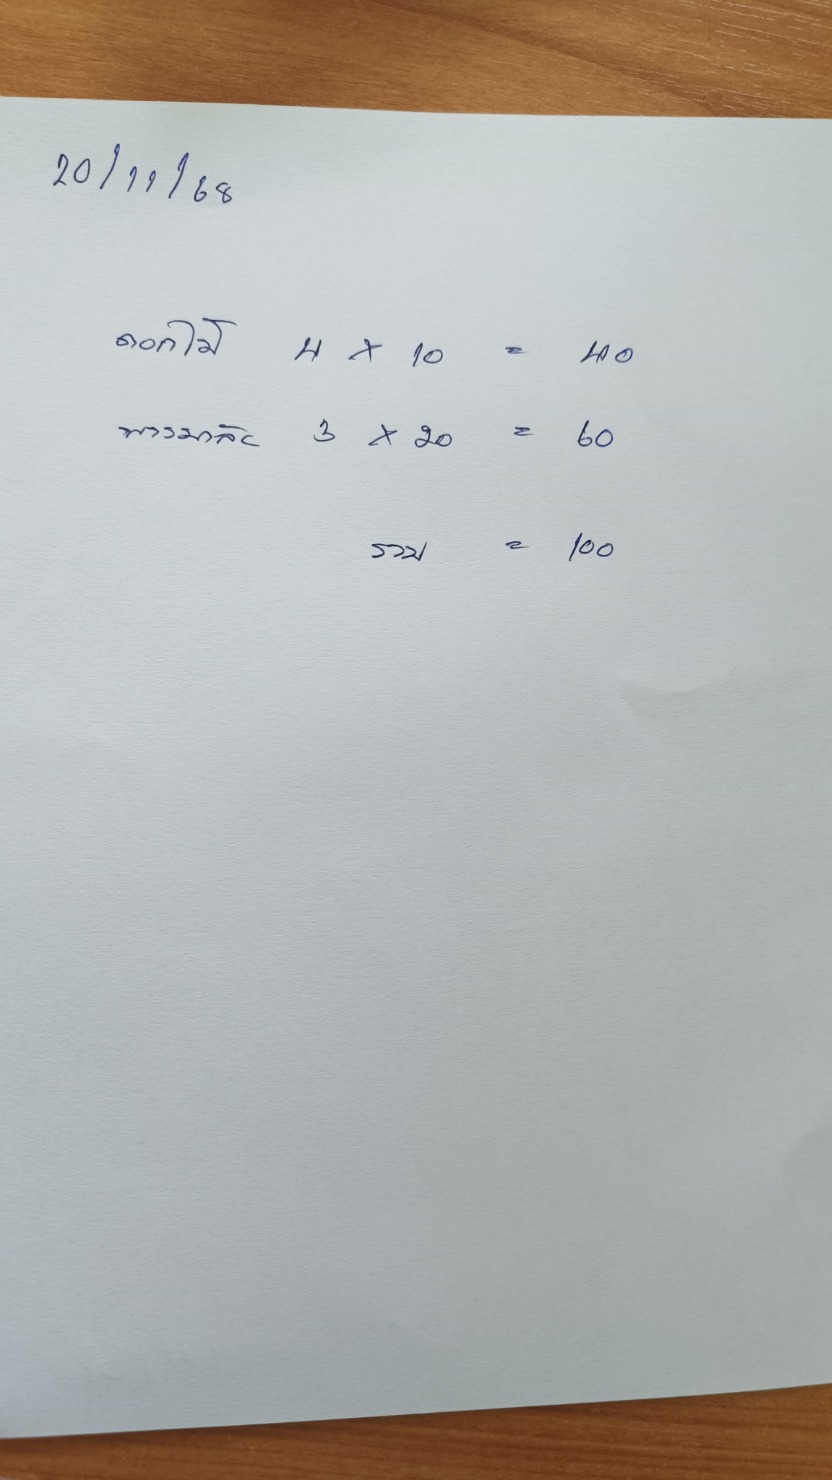 20/11/68
ดอกไม้ 4 x 10 = 40
พวงมาลัย 3 x 20 = 60
รวม = 100